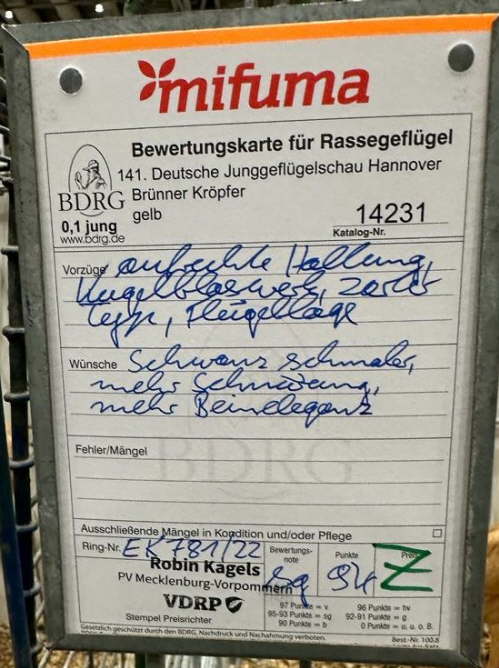 mifuma
Bewertungskarte für Rassegeflügel
141. Deutsche Junggeflügelschau Hannover
BDRG Brünner Kröpfer
gelb
0,1 jung
14231
www.bdrg.de
Katalog-Nr.
Vorzüge aufrechte Haltung,
Kugelblaswerk, zarter
Typ, Flügellage
Wünsche Schwanz schmaler,
mehr Schnürung,
mehr Beineleganz
Fehler/Mängel
BDRG
Ausschließende Mängel in Kondition und/oder Pflege
Ring-Nr. EK781/22 Bewertungs-note Punkte
Robin Kagels
PV Mecklenburg-Vorpommern sg 94 Z
VDRP
97 Punkte = v 96 Punkte = hv
95-93 Punkte = sg 92-91 Punkte = g
90 Punkte = b 0 Punkte = u. o. B.
Stempel Preisrichter
Gesetzlich geschützt durch den BDRG, Nachdruck und Nachahmung verboten.
Best.-Nr. 100.8